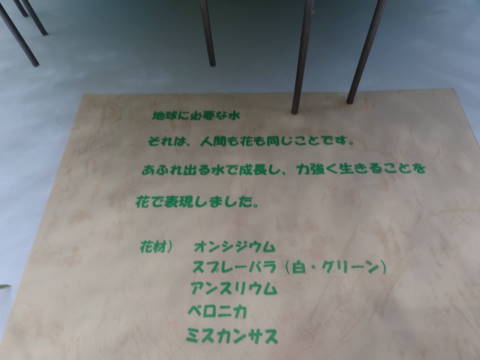 地球に必要な水
それは、人間も花も同じことです。
あふれ出る水で成長し、力強く生きることを
花で表現しました。
花材） オンシジウム
スプレーバラ（白・グリーン）
アンスリウム
ベロニカ
ミスカンサス